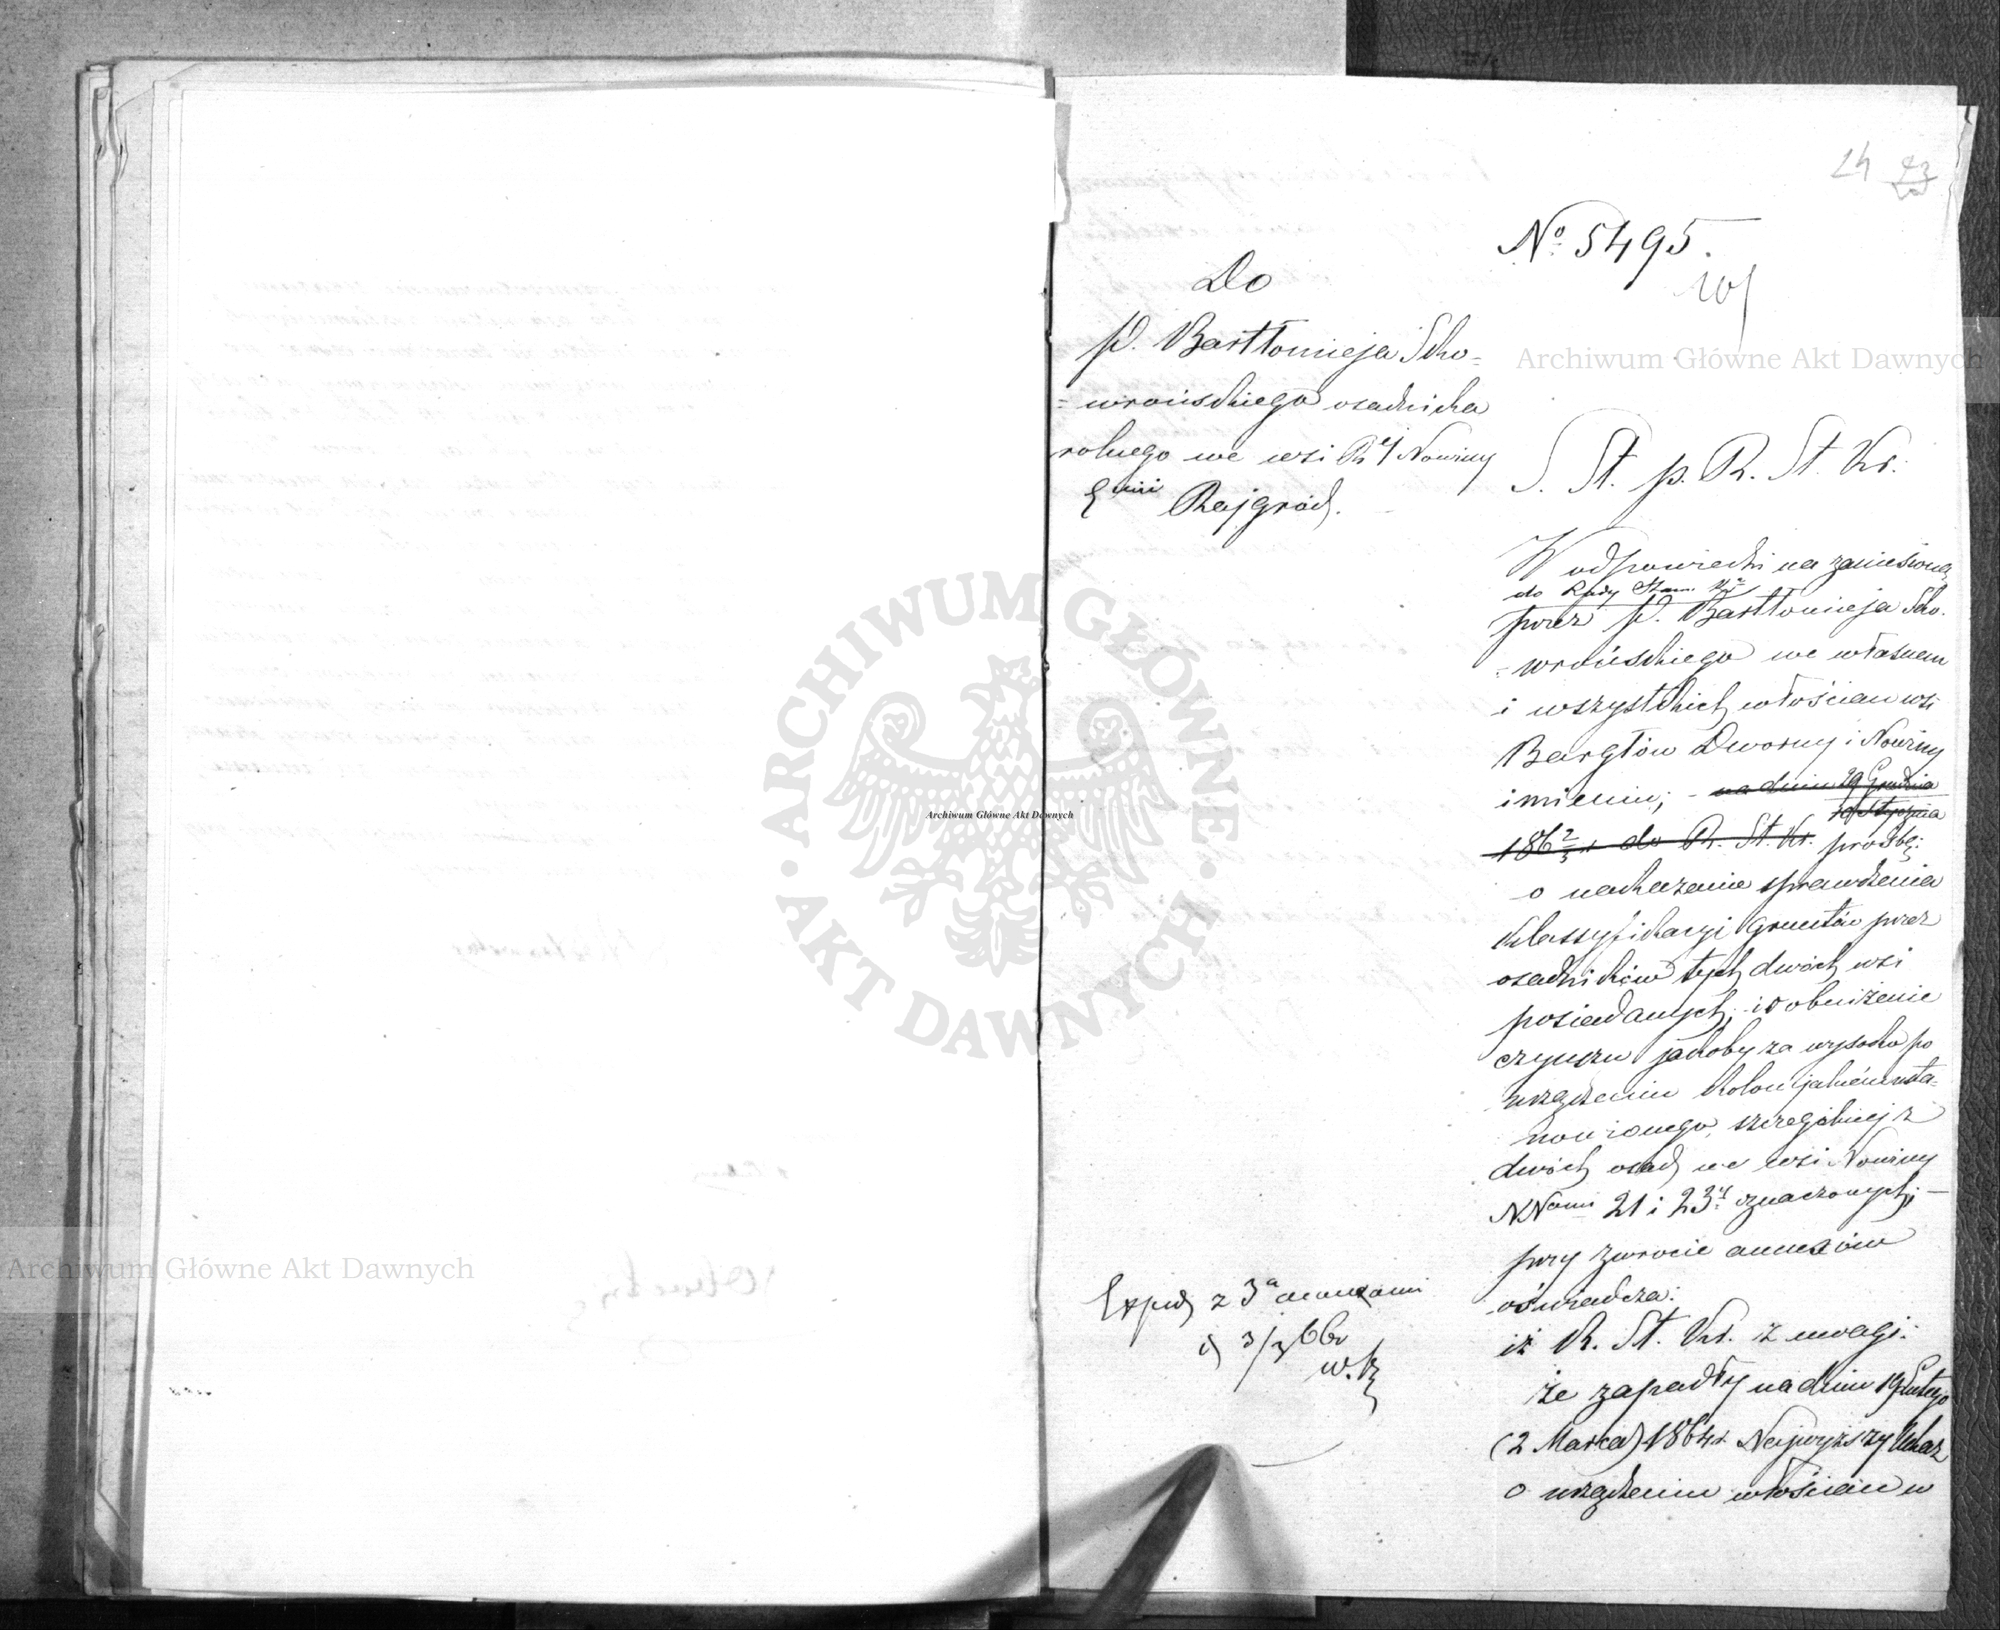 24 23
No 5495.
Do
P. Bartłomieja Sko=
=wrońskiego osadnika
rolnego we wsi Rej Nowiny
Gmi Rajgród.
S. St. p. R. St. Kr.
W odpowiedzi na zaniesioną
do Rady Stanu Kr
przez P. Bartłomieja Sko.
=wrońskiego we własnem
i wszystkich włościan wsi
Bargłów Dworny i Nowiny
imieniu; - na dniu 29 Grudnia
10 Stycznia
186 2/3 r. do R. St. Kr. prośbę:
o nakazanie sprawdzenia
klassyfikacyi gruntów przez
osadników tych dwóch wsi
posiadanych; i o obniżenie
czynszu jakoby za wysoko po
urządzeniu kolonjalnem usta-
nowionego, szczególniej z
dwóch osad we wsi Nowiny
NNami 21 i 23 oznaczonych; —
przy zwrocie annexów
oświadcza:
iż R. St. Kr. z uwagi:
że zapadły na dniu 19 Lutego
(2 Marca) 1864 r. Najwyższy Ukaz
o urządzeniu włościan w
Exped z 3a annexami
d 3/3 66r
Archiwum Główne Akt Dawnych
Archiwum Główne Akt Dawnych
Archiwum Główne Akt Dawnych
ARCHIWUM GŁÓWNE
AKT DAWNYCH